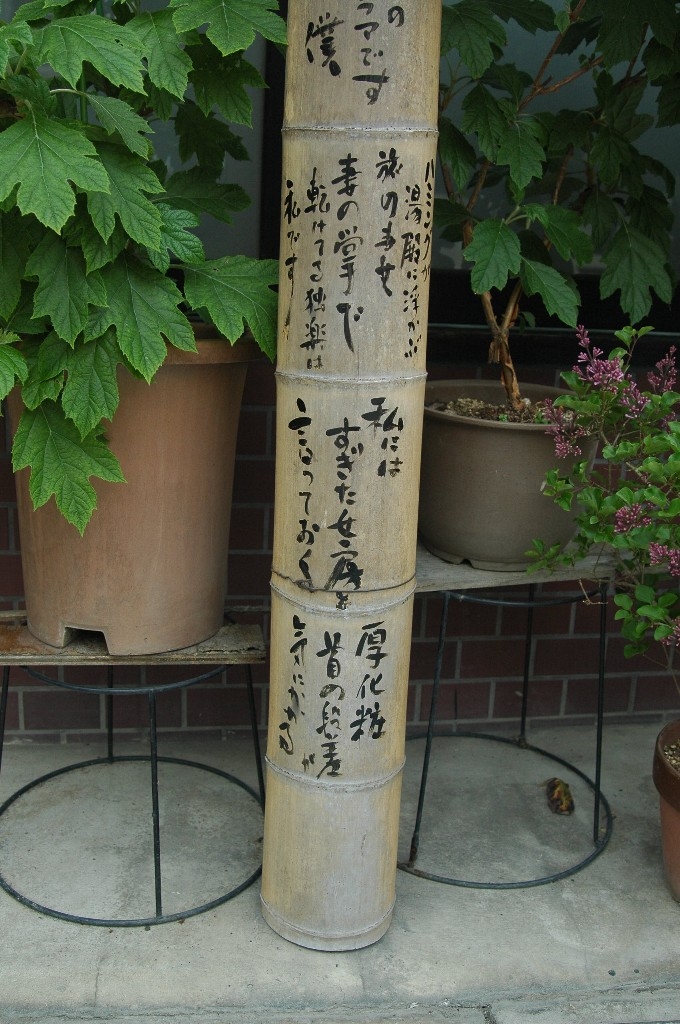 の
アです
僕
ハミングが
湯殿に浮かぶ
旅の
妻の掌で
転けてる独楽は
私です
私には
すぎた女房と
言っておく
厚化粧
首の段差が
気にかかる